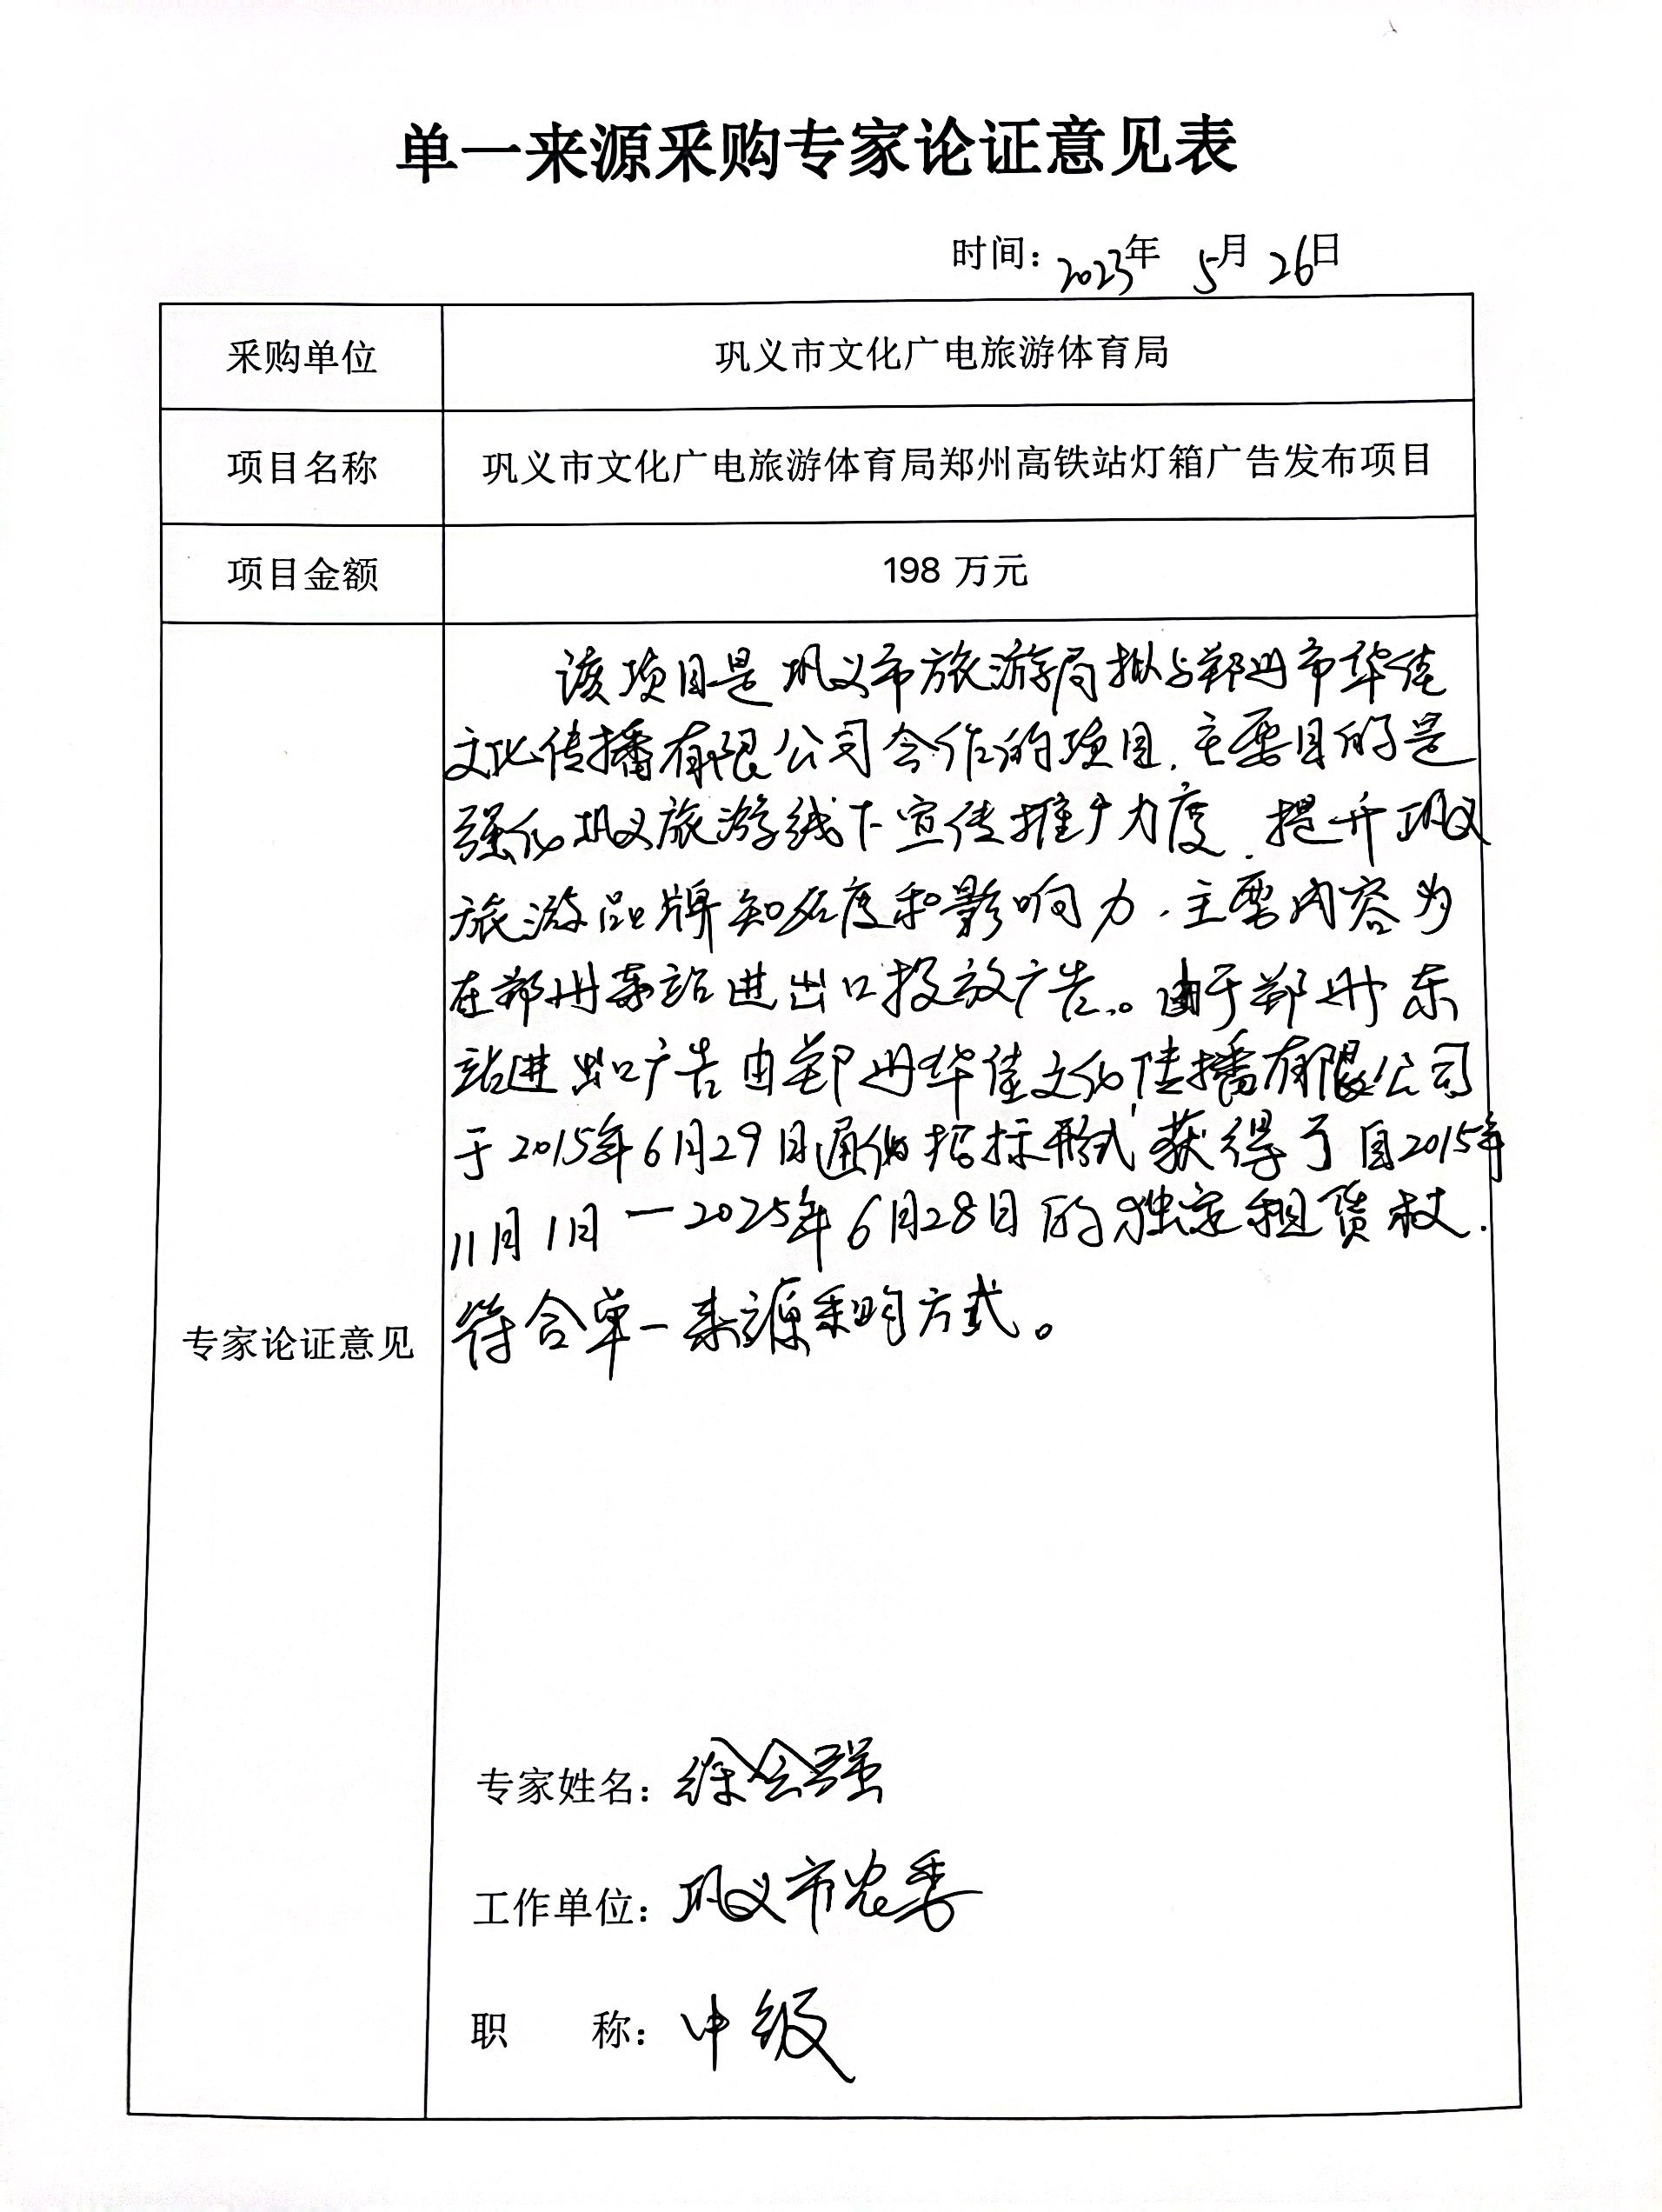 单一来源采购专家论证意见表
时间：2023年 5月 26日
采购单位 巩义市文化广电旅游体育局
项目名称 巩义市文化广电旅游体育局郑州高铁站灯箱广告发布项目
项目金额 198 万元
专家论证意见
该项目是巩义市旅游局拟与郑州市华佳
文化传播有限公司合作的项目，主要目的是
强化巩义旅游线下宣传推广力度，提升巩义
旅游品牌知名度和影响力，主要内容为
在郑州东站进出口投放广告。由于郑州东
站进出口广告由郑州华佳文化传播有限公司
于2015年6月29日通过招标形式获得了自2015年
11月1日一2025年6月28日的独家租赁权.
符合单一来源采购方式。
专家姓名：徐会强
工作单位：巩义市农委
职 称：中级